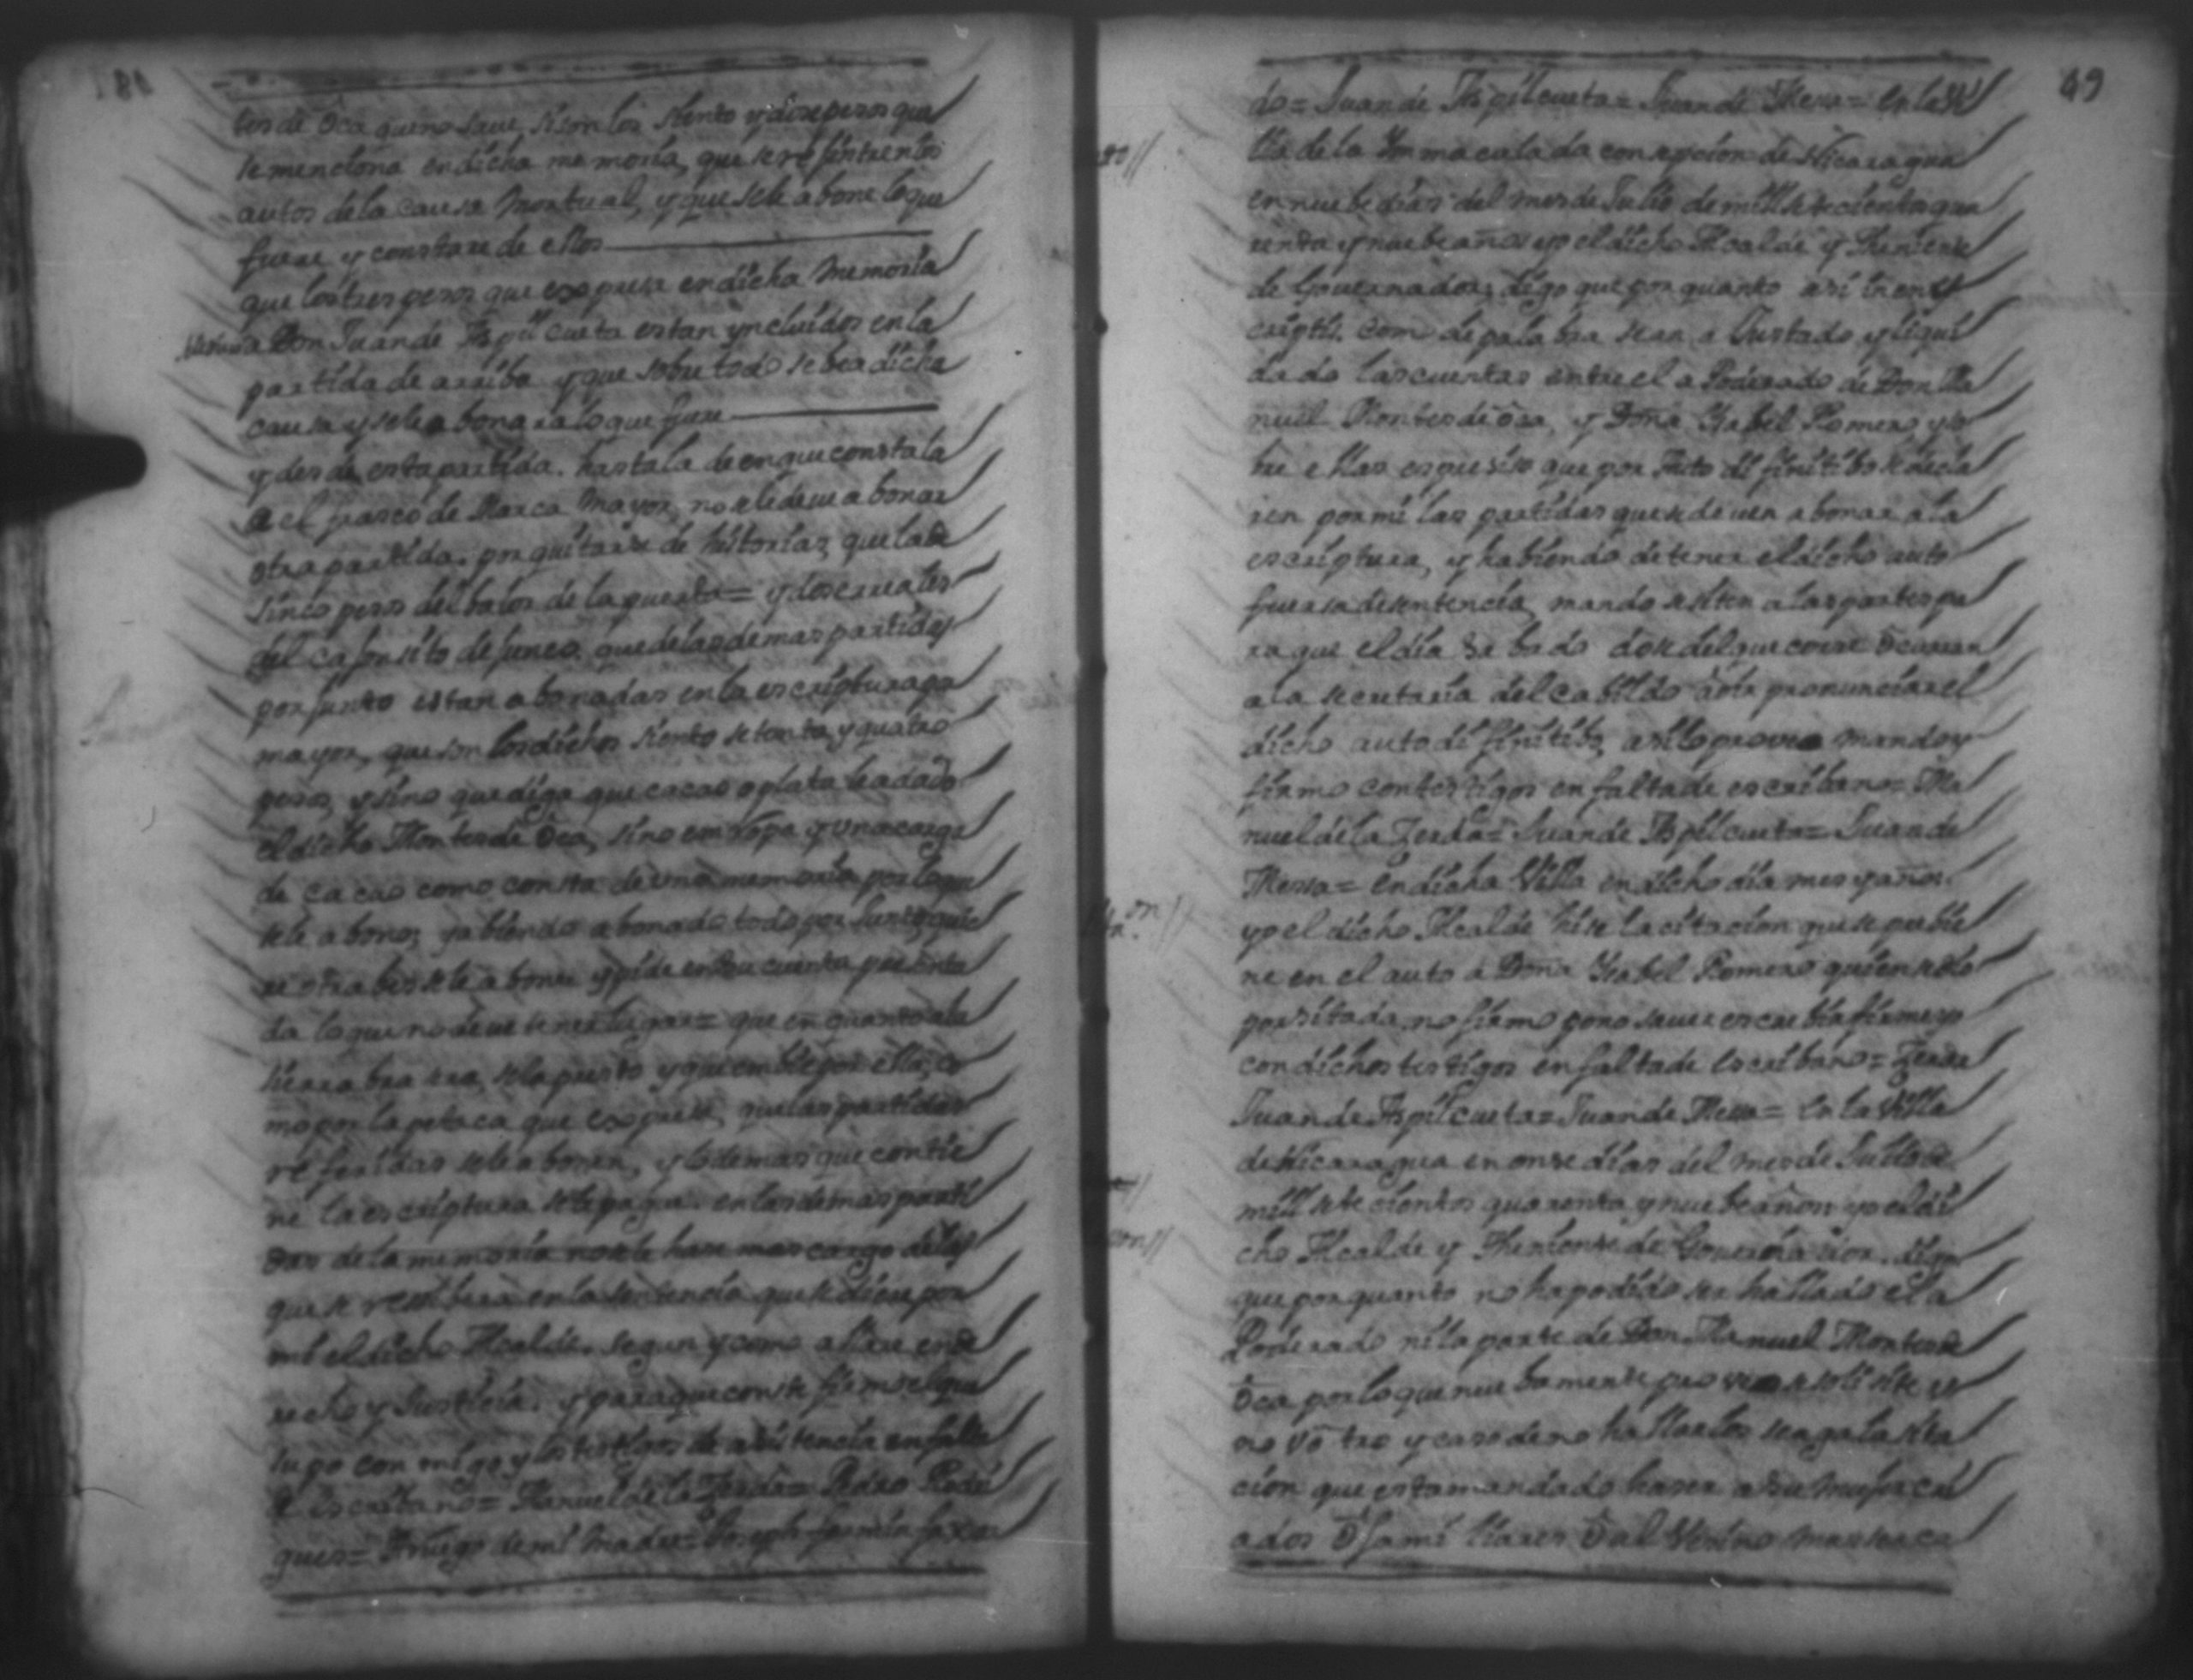 tes de Oca que no save, si son los siento y dose pesos que
se menciona en dicha memoria, que se
autos de la causa mortual, y que se le abone lo que
fuere y constare de ellos
que los tres pesos que expresa en dicha memoria
a Don Juan de Aspilcueta estan yncluidos en la
partida de arriba y que sobre todo se bea dicha
causa y se le abonara lo que fuere
y desde esta partida. hasta la de en que consta la
el frasco de Marca mayor, no se le deve abonar
otra partida. por quitarse de historias, que la de
sinco pesos del balor de la puerta = y dose reales
del cajonsito de que de las demas partidas
por junto estan abonadas en la escriptura pa
mayor, que son los dichos siento setenta y quatro
pesos, y sino que diga que cacao o plata le a dado
el dicho Montes de Oca, sino en ropa y una carga
de cacao como consta de una memoria por la que
se le abono, y abiendo abonado todo por junto, quie
re otra bes se le abone y pide en su cuenta presenta
da lo que no deve tener lugar = que en quanto a la
tierra se la presto y que embie por ella, co
mo por la petaca que expresa, que las partidas
referidas se le abonen, y lo demas que contie
ne la escriptura se le pague. en las demas parti
das de la memoria no se le hase mas cargo de lo
que se resibiera en la sentencia que se diere por
mi el dicho Alcalde. segun y como allare en de
recho y Justicia. y para que conste firmo el que
supo con migo y los testigos de asistencia en falta
de escribano = Manuel de la Zerda = Pedro Rodri
gues = A ruego de mi madre =
49
do = Juan de Aspilcueta = Juan de Mesa = En la Vi
lla de la Ynmaculada consepcion de Nicaragua
en nuebe dias del mes de Julio de mill setecientos qua
renta y nuebe años yo el dicho Alcalde y Theniente
de Governador; digo que por quanto asi in ens
criptis. como de palabra se an a Justado y liqui
dado las cuentas entre el a Poderado de Don Ma
nuel Montes de oca, y Doña Ysabel Romero, y so
bre ellas es presiso que por Auto difinitibo se decla
ren por mi las partidas que se deven abonar a la
escriptura, y habiendo de tener el dicho auto
fuersa de sentencia, mando se siten a las partes pa
ra que el dia sabado dose del que corre ocurran
a la secretaria del cabildo a oir pronunciar el
dicho auto difinitibo, asi lo proveo mando y
firmo con testigos en falta de escribano = Ma
nuel de la Zerda = Juan de Aspilcueta = Juan de
Mesa = En dicha Villa en dicho dia mes y años.
yo el dicho Alcalde hise la citacion que se prebie
ne en el auto a Doña Ysabel Romero quien se dio
por sitada, no firmo por no saver escrebir firme yo
con dichos testigos en falta de escribano = Zerda
Juan de Aspilcueta = Juan de Mesa = En la Villa
de Nicaragua en onse dias del mes de Julio de
mill setecientos quarenta y nuebe años yo el di
cho Alcalde y Theniente de Governador. digo
que por quanto no ha podido ser hallado el a
Poderado ni la parte de Don Manuel Montes de
Oca por lo que nuebamente proveo se solisite u
no ú otro y caso de no hallarlos se aga la sita
cion que esta mandado haser a su mujer cri
ados o familiares o al Vesino mas serca